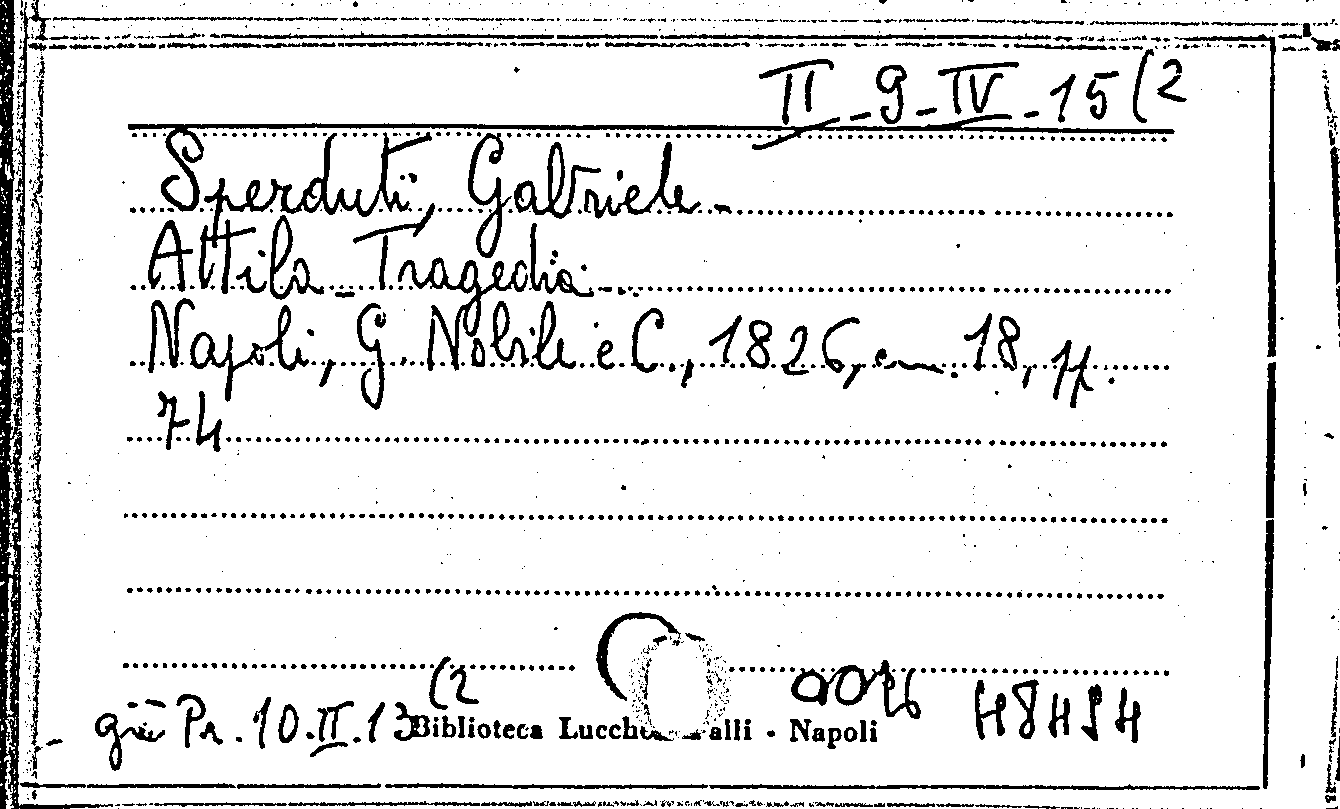 II-9-IV-15(2
Sperduti, Gabriele -
Attila - Tragedia -
Napoli, G. Nobile e C., 1826, cm. 18, pp.
74
già Pr. 10.II.13(2
Biblioteca Lucche alli - Napoli
48494